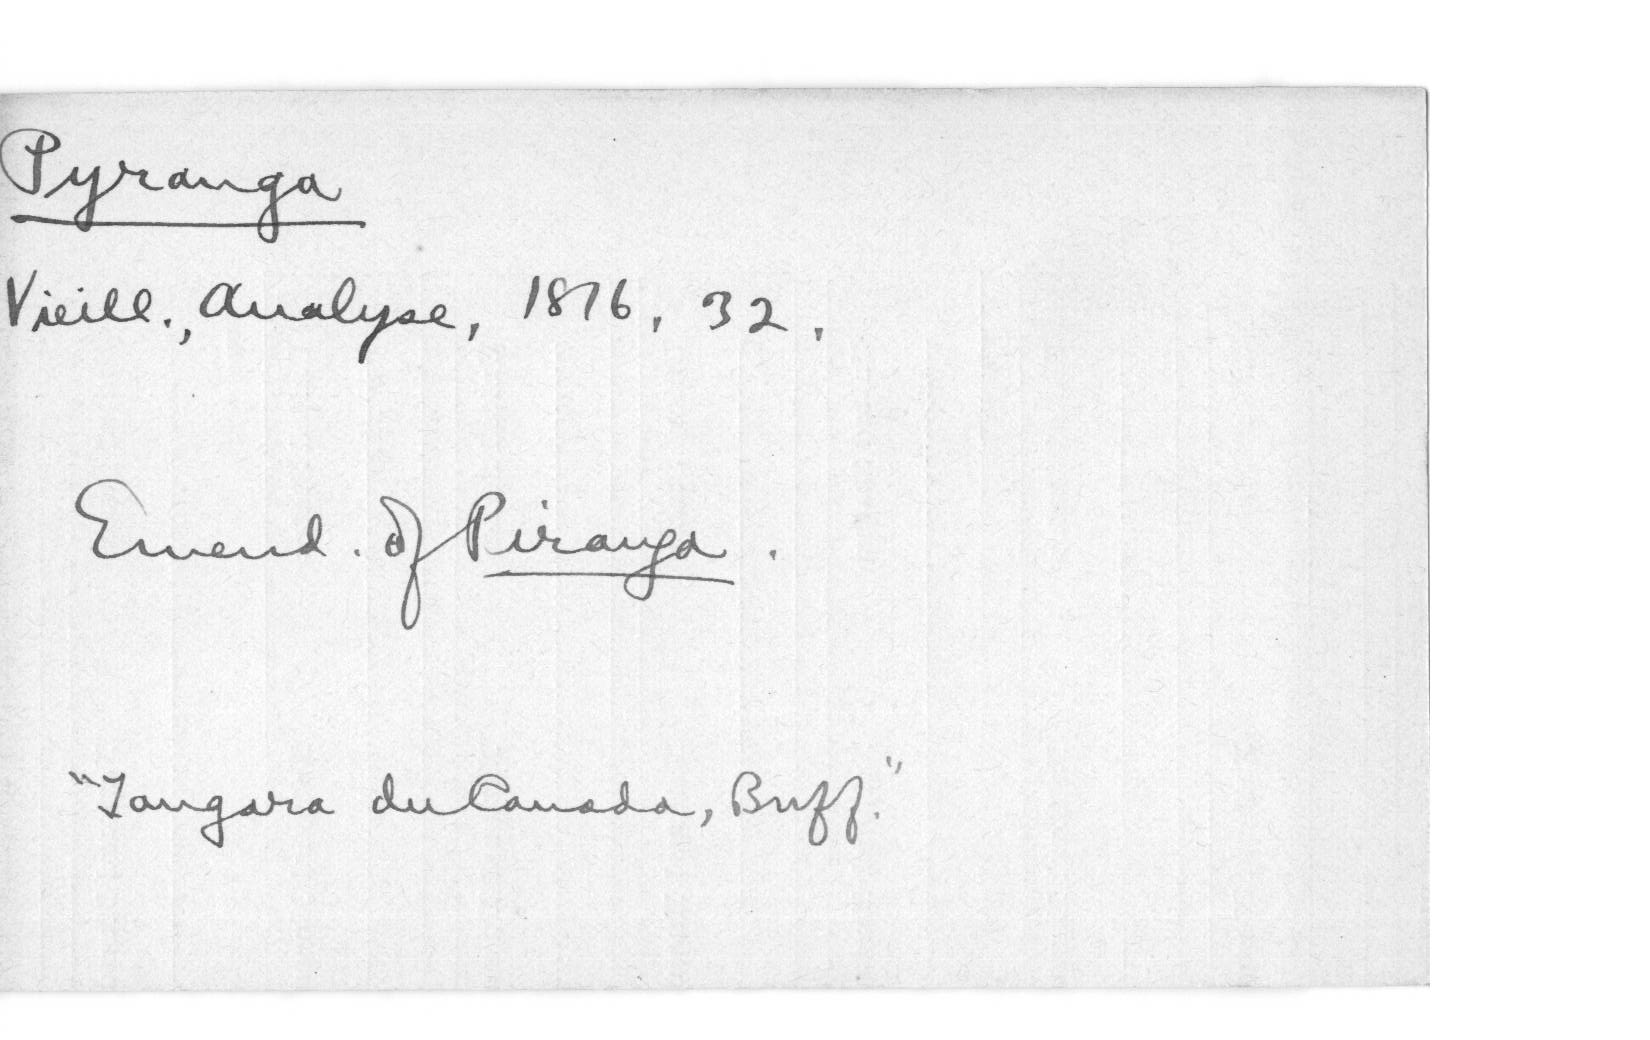 Pyranga
Vieill., Analyse, 1816, 32,
Emend. of Piranga.
"Tangara du Canada, Buff."